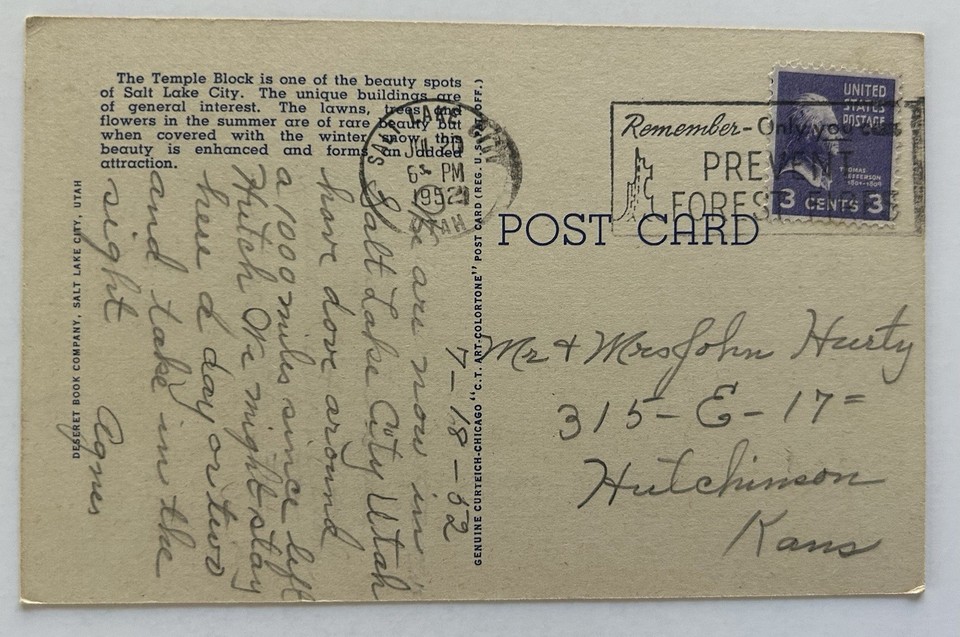 The Temple Block is one of the beauty spots
of Salt Lake City. The unique buildings are
of general interest. The lawns, trees and
flowers in the summer are of rare beauty but
when covered with the winter snow this
beauty is enhanced and forms an added
attraction.
DESERET BOOK COMPANY, SALT LAKE CITY, UTAH
7-18-52
We are now in
Salt Lake City Utah
have dove around
a 1000 miles since left
Hutch Or might stay
here a day or two
and take in the
sight
Agnes
GENUINE CURTEICH-CHICAGO "C.T. ART-COLORTONE" POST CARD (REG. U.S. PAT. OFF.)
SALT LAKE CITY
JUL 20
6 PM
1952
UTAH
Remember-Only you can
PREVENT
FOREST
UNITED
STATES
POSTAGE
THOMAS
JEFFERSON
1801-1809
3 CENTS 3
POST CARD
Mr & Mrs John Hurty
315-E-17=
Hutchinson
Kans